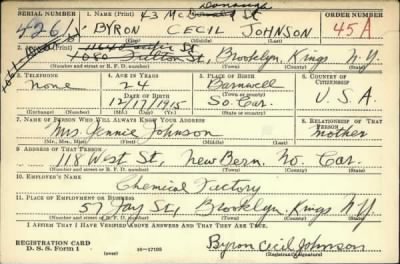 SERIAL NUMBER 1. NAME (Print) 43 McDonough St ORDER NUMBER
4261 BYRON CECIL JOHNSON 45A
(First) (Middle) (Last)
2. ADDRESS (Print)
1080 Fulton St, Brooklyn, Kings N.Y.
(Number and street or R. F. D. number) (Town) (County) (State)
3. TELEPHONE 4. AGE IN YEARS 5. PLACE OF BIRTH 6. COUNTRY OF CITIZENSHIP
None 24 Barnwell
DATE OF BIRTH (Town or county)
12/17/1915 So. Car. U.S.A.
(Exchange) (Number) (Mo.) (Day) (Yr.) (State or country)
7. NAME OF PERSON WHO WILL ALWAYS KNOW YOUR ADDRESS 8. RELATIONSHIP OF THAT PERSON
Mrs. Jennie Johnson mother
(Mr., Mrs., Miss) (First) (Middle) (Last)
9. ADDRESS OF THAT PERSON
118 West St, New Bern, No. Car.
(Number and street or R. F. D. number) (Town) (County) (State)
10. EMPLOYER'S NAME
Chemical Factory
11. PLACE OF EMPLOYMENT OR BUSINESS
57 Jay St, Brooklyn, Kings NY
(Number and street or R. F. D. number) (Town) (County) (State)
I AFFIRM THAT I HAVE VERIFIED ABOVE ANSWERS AND THAT THEY ARE TRUE.
REGISTRATION CARD
D. S. S. Form 1 16-17105 Byron Cecil Johnson
(Registrant's signature)